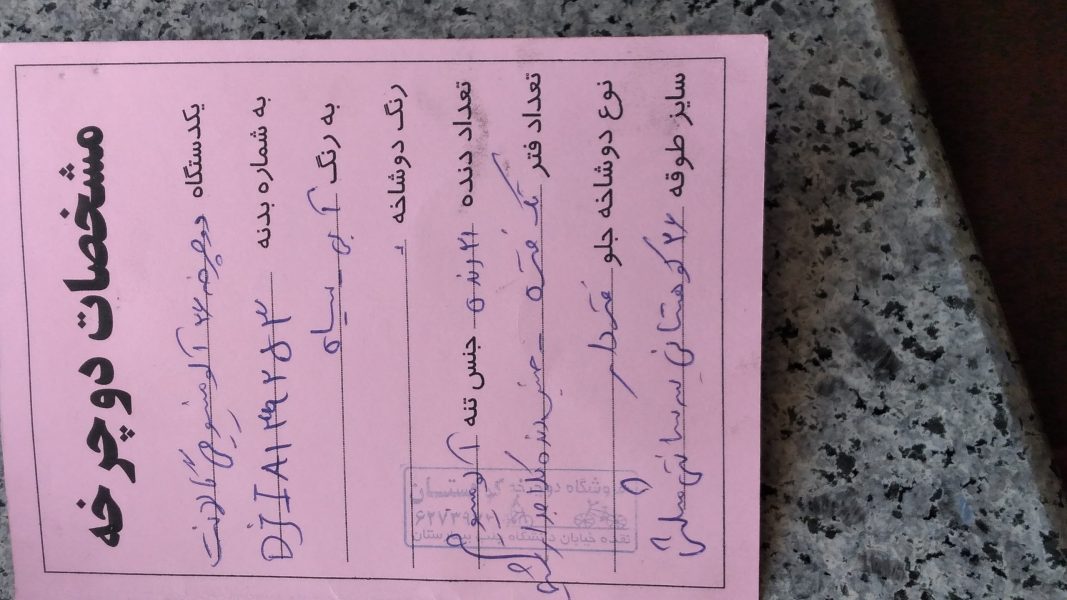 مشخصات دوچرخه
یکدستگاه دوچرخه ۲۶ آلومینیومی گالانت
به شماره بدنه DJIA139253
به رنگ آبی _ سیاه
رنگ دوشاخه "
تعداد دنده ۲۱ دنده جنس تنه آلومینیوم
تعداد فنر تک فنره _ جنس دنده
نوع دوشاخه جلو فنردار
سایز طوقه ۲۶ کوهستانی
فروشگاه دوچرخه
۶۲۷۳۹
نقده خیابان دانشگاه